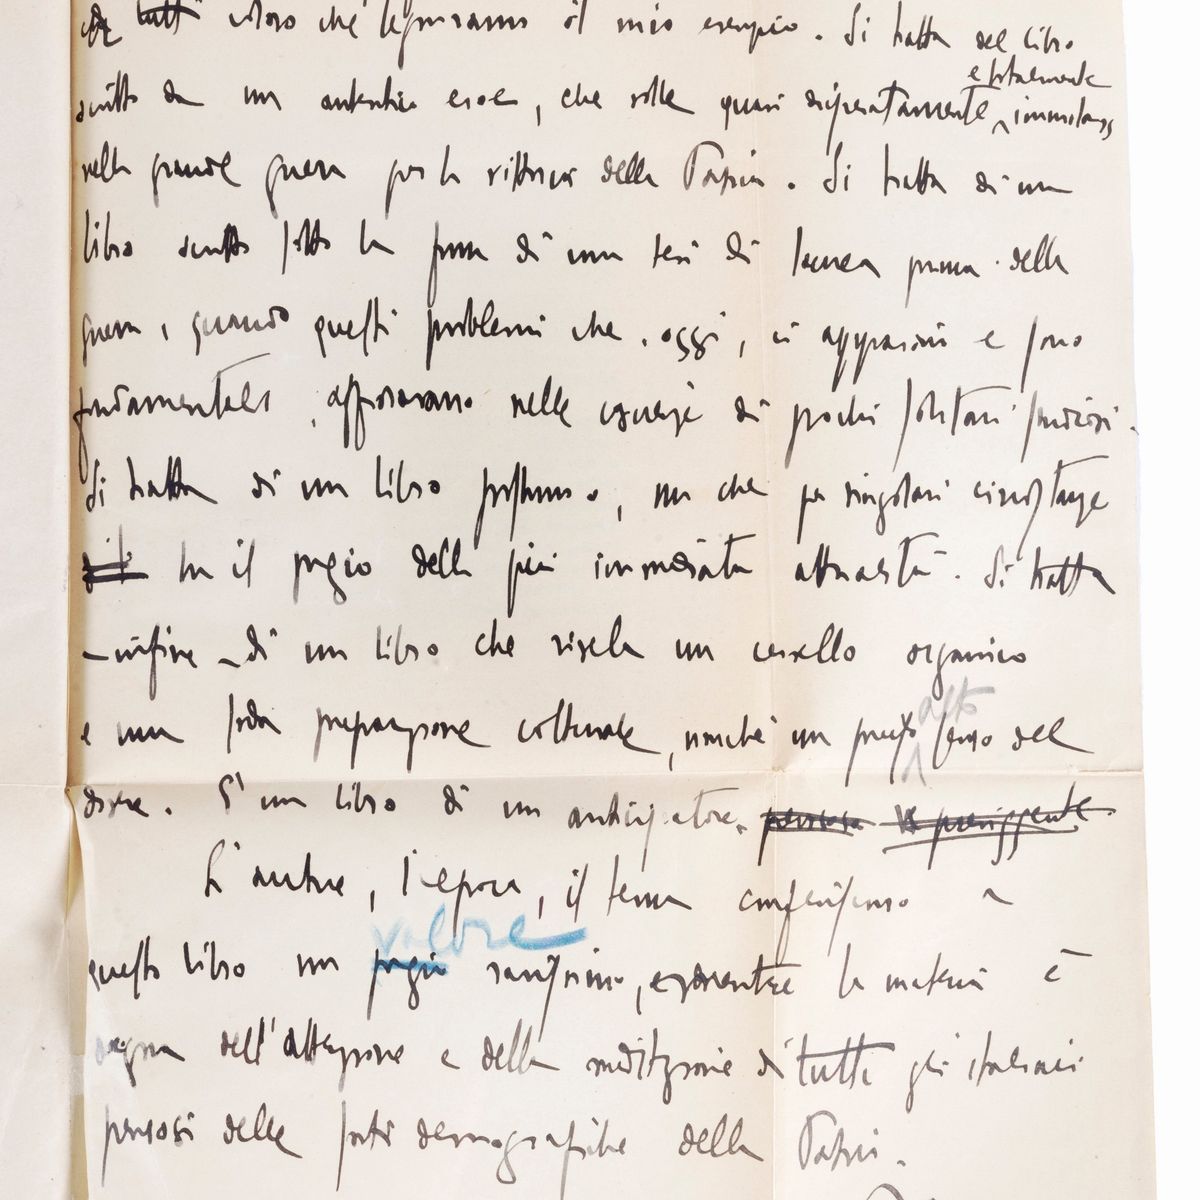 tutti coloro che seguiranno il mio esempio. Si tratta del libro
scritto da un autentico eroe, che volle quasi disperatamente e totalmente immolarsi
nella grande guerra per la vittoria della Patria. Si tratta di un
libro scritto sotto la forma di una tesi di laurea prima della
guerra, quando questi problemi che, oggi, ci appassionano e sono
fondamentali, affioravano nelle coscienze di pochi solitari studiosi.
Si tratta di un libro postumo, ma che per singolari circostanze
ha il pregio della più immediata attualità. Si tratta
- infine - di un libro che rivela un cervello organico
e una soda preparazione colturale, nonché un alto senso del
dovere. È un libro di un anticipatore. pensoso preveggente
L'autore, l'epoca, il tema conferiscono a
valore
questo libro un pregio rarissimo, mentre la materia è
degna dell'attenzione e della meditazione di tutti gli italiani
pensosi delle sorti demografiche della Patria.